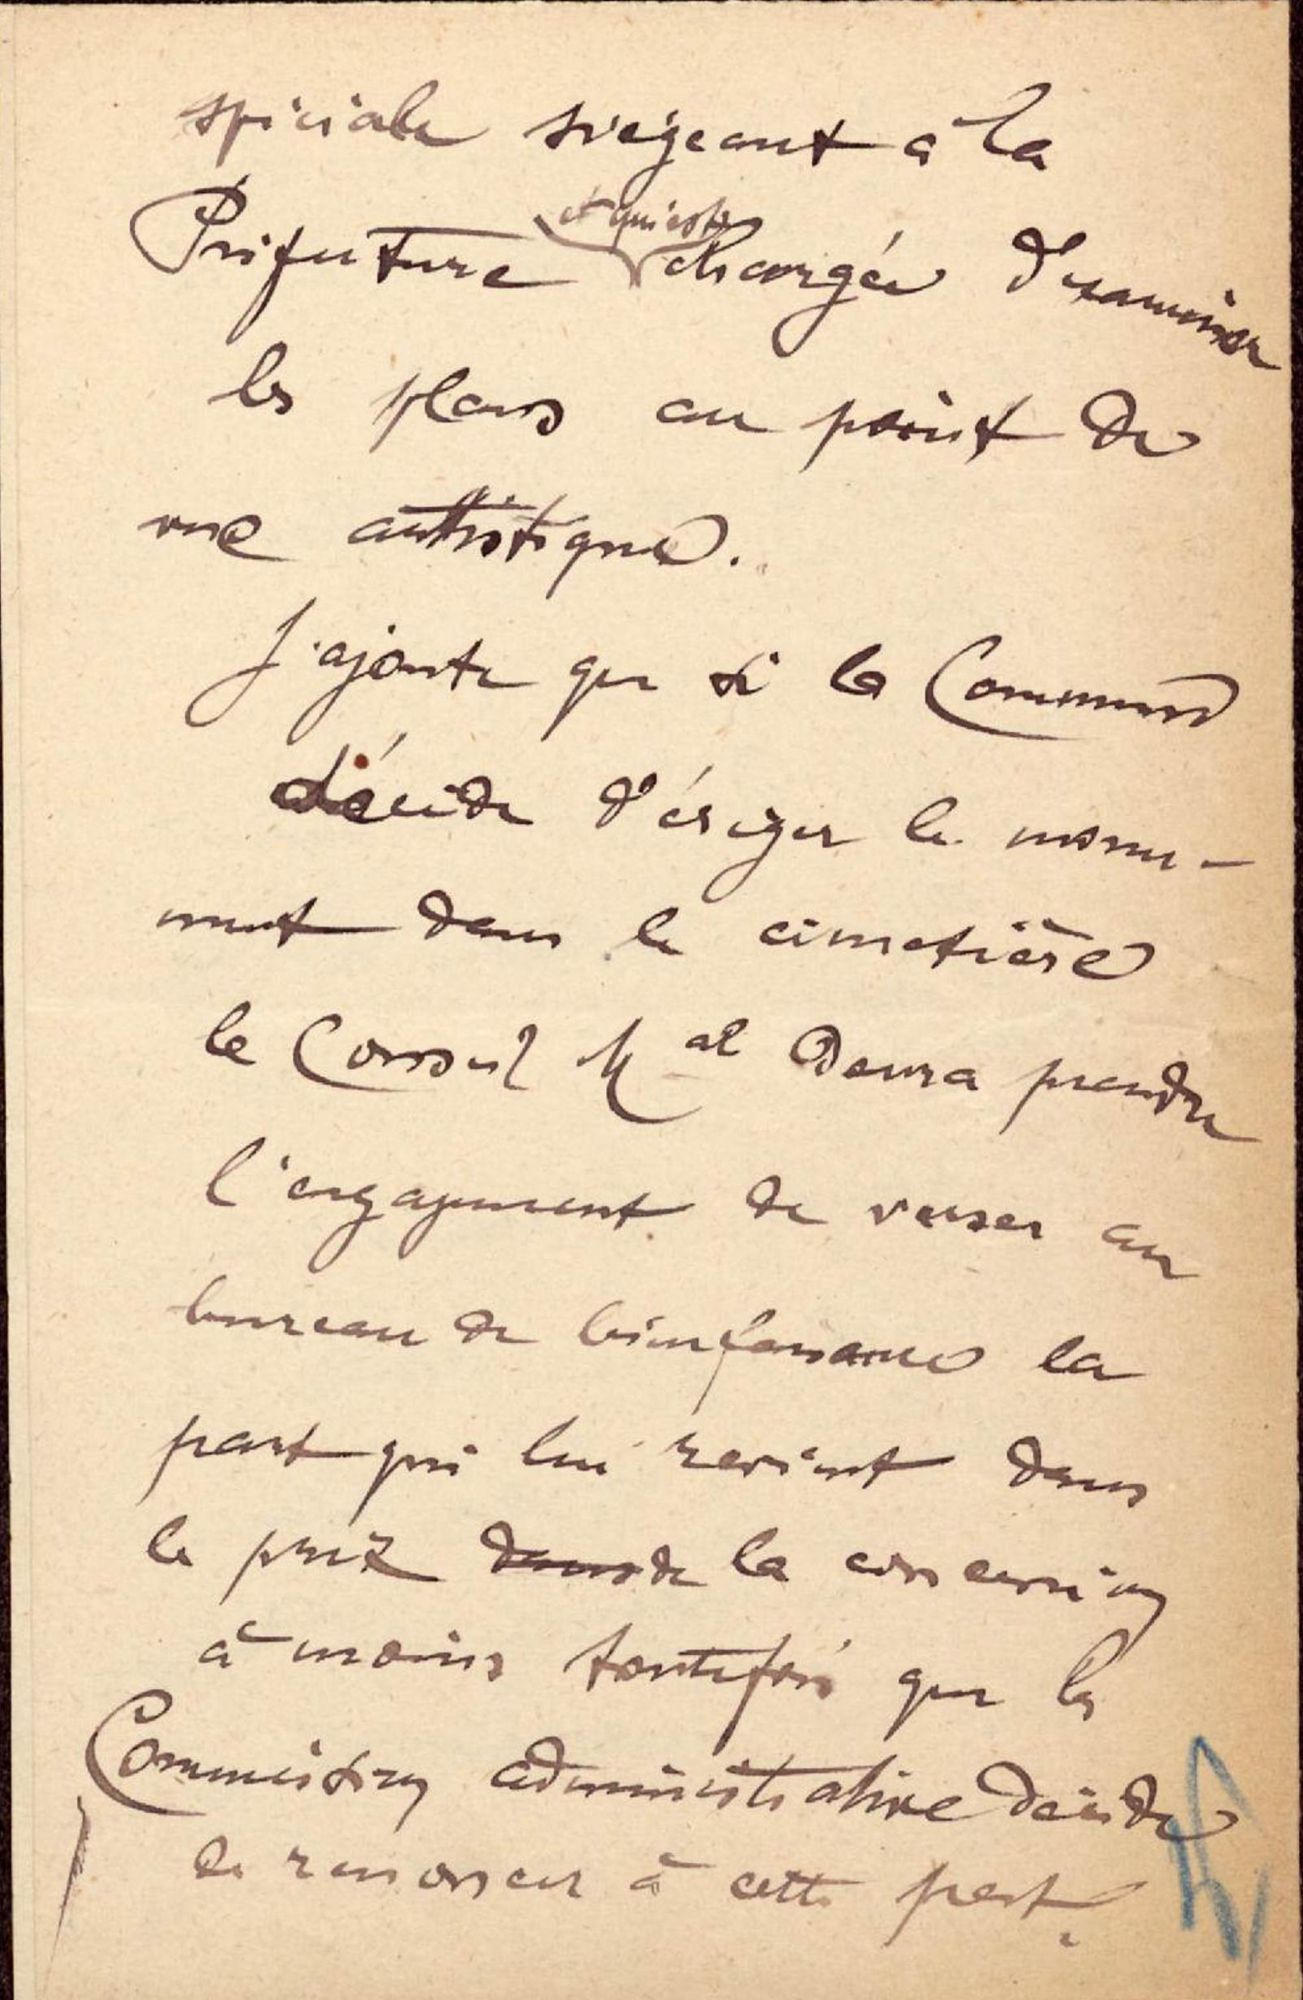 spéciale siégeant à la
Préfecture et qui est chargée d'examiner
les plans au point de
vue artistique.
J'ajoute que si la Commune
décide d'ériger le monu-
ment dans le cimetière
le Conseil Mal devra prendre
l'engagement de verser au
bureau de bienfaisance la
part qui lui revient dans
le prix dans de la concession
à moins toutefois que la
Commission administrative décide
de renoncer à cette part.